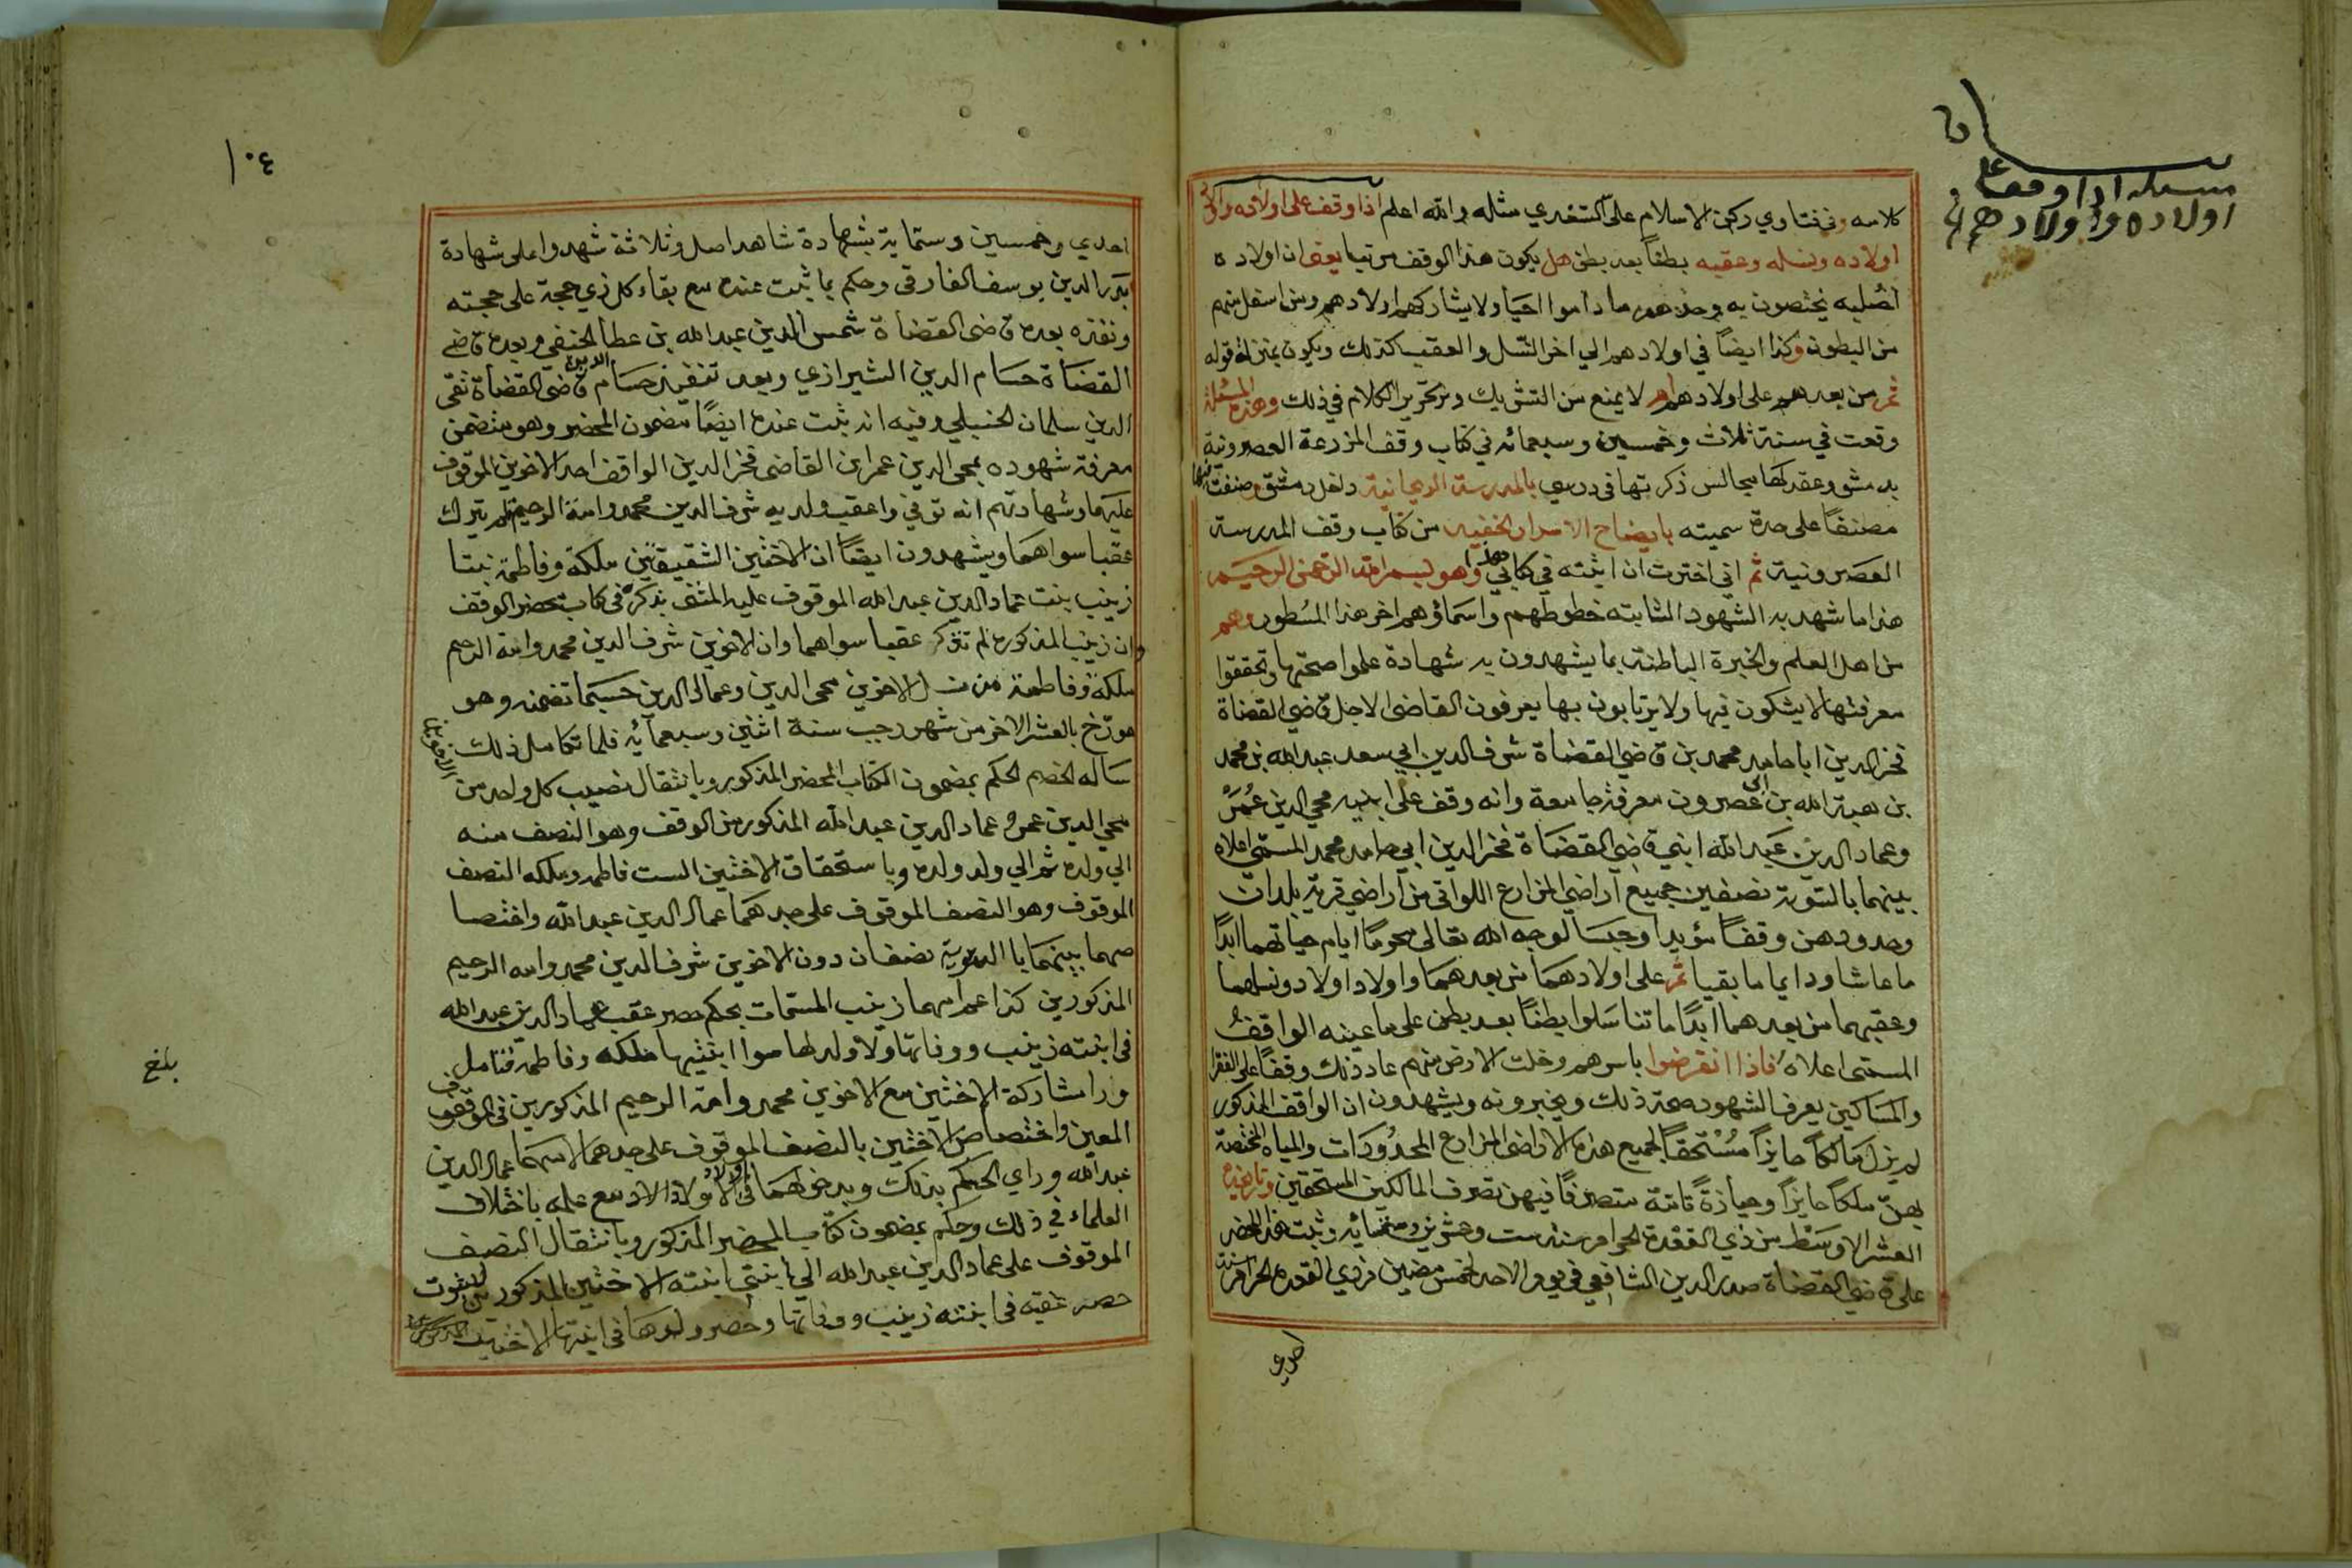 مسئلة اذا وقف على
اولاده واولادهم
كلامه وفي فتاوي ركن الاسلام على السغدي مثله والله اعلم اذا وقف على اولاده واولاد
اولاده ونسله وعقبه بطناً بعد بطن هل يكون هذا الوقف مرتبا يعني ان اولاده
لصلبه يختصون به وحدهم ما داموا احيا ولا يشاركهم اولادهم ومن اسفل منهم
من البطون وكذا ايضاً في اولادهم الي اخر النسل والعقب كذلك ويكون بمنزلة قوله
ثم من بعدهم على اولادهم ام لا يمنع من التشريك وتحرير الكلام في ذلك وهذه المسئلة
وقعت في سنة ثلاث وخمسين وسبعمائه في كتاب وقف المزرعة العصرونية
بدمشق وعقد لها مجالس ذكرتها في درسي بالمدرسة الريحانية داخل دمشق وصنفت فيها
مصنفاً على حدة سميته بايضاح الاسرار الخفيه من كتاب وقف المدرسة
العصرونية ثم اني اخترت ان اثبته في كتابي هذا وهو بسم الله الرحمن الرحيم
هذا ما شهد به الشهود الثابته خطوطهم واسماؤهم اخر هذا المسطور وهم
من اهل العلم والخبرة الباطنة بما يشهدون به شهادة علموا صحتها وتحققوا
معرفتها لا يشكون فيها ولا يرتابون بها يعرفون القاضي الاجل قاضي القضاة
فخر الدين ابا حامد محمد بن قاضي القضاة شرف الدين ابي سعد عبد الله بن محمد
بن هبة الله بن ابي عصرون معرفة جامعة وانه وقف على ابنيه محي الدين عمر
وعماد الدين عبد الله ابني قاضي القضاة فخر الدين ابي حامد محمد المسمى اعلاه
بينهما بالسوية نصفين جميع اراضي المزارع اللواتي من اراضي قرية بلدات
وحدودهن وقفاً مؤيدا وحبسا لوجه الله تعالى محرما ايام حياتهما ابدًا
ما عاشا ودايما ما بقيا ثم على اولادهما من بعدهما واولاد اولاد ونسلهما
وعقبهما من بعدهما ابدًا ما تناسلوا بطنًا بعد بطن على ما عينه الواقف
المسمى اعلاه فاذا انقرضوا باسرهم وخلت الارض منهم عاد ذلك وقفًا على الفقرا
والمساكين يعرف الشهود صحة ذلك ويخبرونه ويشهدون ان الواقف المذكور
لم يزل مالكًا حايزاً مستحقاً لجميع هذه الاراضي المزارع المحدودات والمياه المختصة
بهن ملكًا حايزاً وحيازةً تامة متصرفًا فيهن تصرف المالكين المستحقين وتاريخه
العشر الاوسط من ذي القعدة الحرام سنة ست وعشرين وستمائه وثبت هذا المحضر
على قاضي القضاة صدر الدين الشافعي في يوم الاحد لخمس مضين من ذي القعدة الحرام سنة
احدي
١٠٤
احدي وخمسين وستماية بشهادة شاهد اصل وثلاثة شهدوا على شهادة
بدر الدين يوسف الفارقي وحكم بما ثبت عنده مع بقاء كل ذي حجة على حجته
ونفذه بعده قاضي القضاة شمس الدين عبد الله بن عطا الحنفي وبعده قاضي
القضاة حسام الدين الشيرازي وبعد تنفيذ حسام الدين قاضي القضاة تقي
الدين سلمان الحنبلي وفيه انه ثبت عنده ايضًا مضمون المحضر وهو متضمن
معرفة شهوده بمحي الدين عمر ابن القاضي فخر الدين الواقف احد الاخوين الموقوف
عليهما وشهادتهم انه توفي واعقب ولديه شرف الدين محمد وامة الرحيم لم يترك
عقبا سواهما ويشهدون ايضًا ان الاختين الشقيقتين ملكة وفاطمة بنتا
زينب بنت عماد الدين عبد الله الموقوف عليه المثنى بذكره في كتاب محضر الوقف
وان زينب المذكوره لم تترك عقبا سواهما وان الاخوين شرف الدين محمد وامة الرحيم
ملكة وفاطمة من نسل الاخوين محي الدين وعماد الدين حسبما تضمنه وهو
مورّخ بالعشر الاخر من شهر رجب سنة اثنين وسبعمائه فلما تكامل ذلك
ساله الخصم الحكم بمضمون الكتاب المحضر المذكور وبانتقال نصيب كل واحد من الاخوين
محي الدين عمر وعماد الدين عبد الله المذكور من الوقف وهو النصف منه
الي ولده ثم الي ولد ولده وباستحقاق الاختين الست فاطمه وملكه النصف
الموقوف وهو النصف الموقوف على جدهما عماد الدين عبد الله واختصا
صهما بينهما بالسوية نصفان دون الاخوين شرف الدين محمد وامه الرحيم
المذكورين كذا عم امهما زينب المسمات بحكم حصر عقب عماد الدين عبد الله
في ابنته زينب ووفاتها ولا ولد لها سوا ابنتيها ملكه وفاطمة فتامل
ورا مشاركة الاختين مع الاخوين محمد وامة الرحيم المذكورين في الوقف
المعين واختصاص الاختين بالنصف الموقوف على جدهما لامهما عماد الدين
عبد الله وراي الحكم بذلك وبدخولهما في الاولاد مع علمه باختلاف
العلماء في ذلك وحكم بمضمون كتاب المحضر المذكور وبانتقال النصف
الموقوف على عماد الدين عبد الله الي ابنتي ابنته الاختين المذكورتين لثبوت
حصر عقبه في ابنته زينب ووفاتها وحصر ولدها في ابنتيها الاختين المذكورتين
بلغ